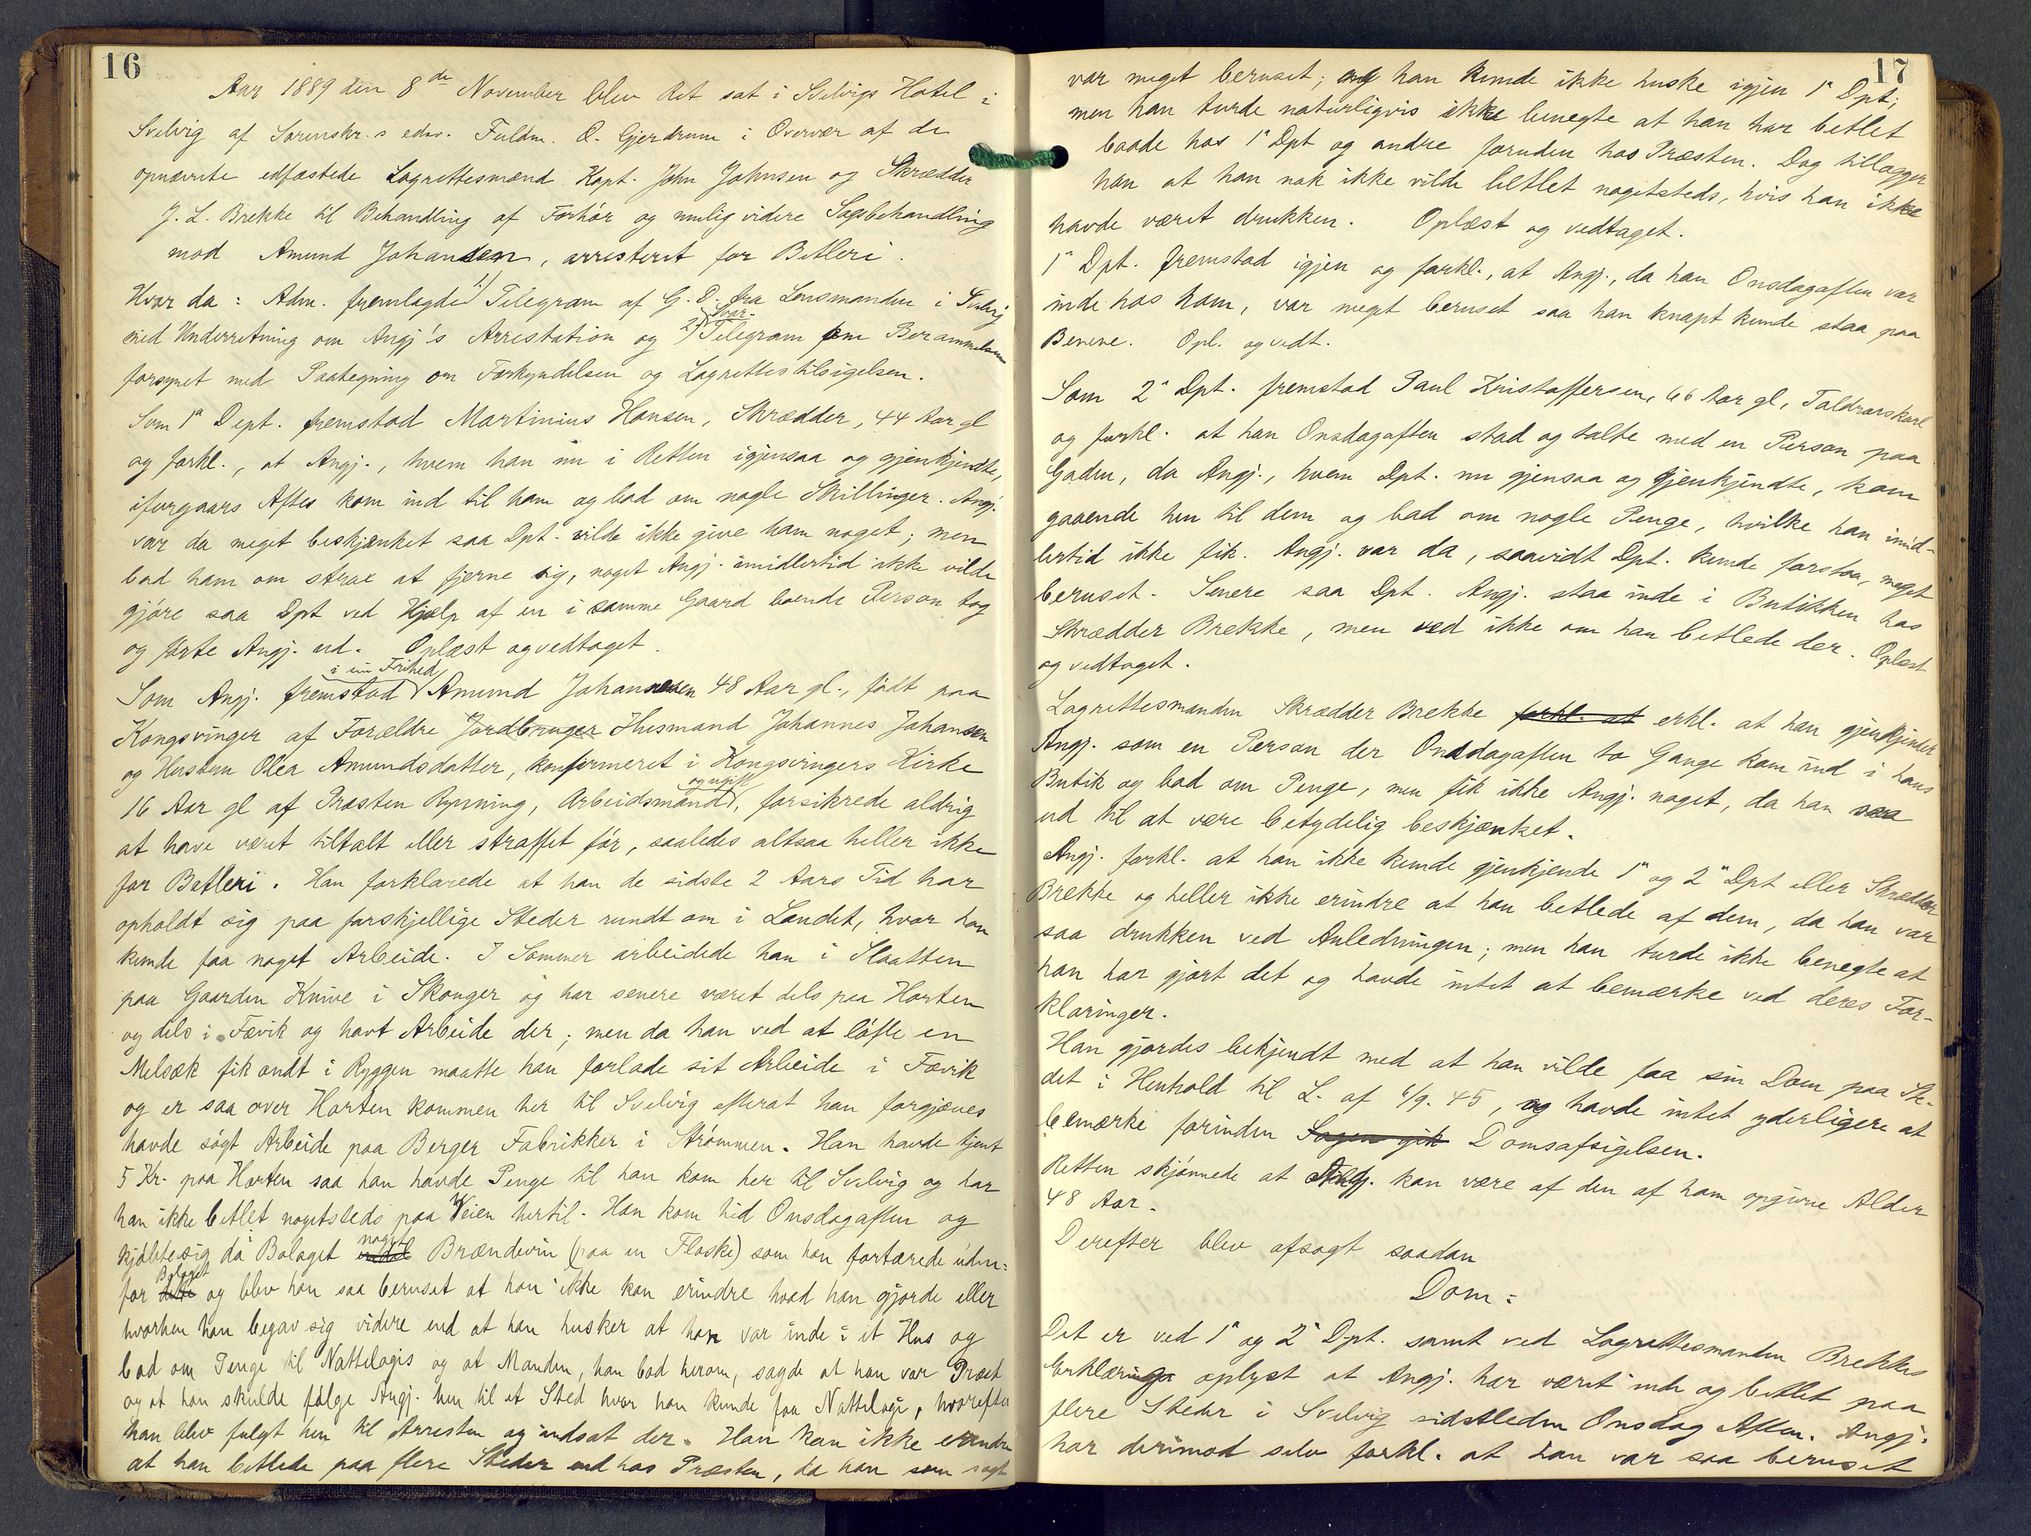 16
Aar 1889 den 8de November blev Ret sat i Svelvigs Hotel i
Svelvig af Sorenskr.s edsv. Fuldm. O. Gjerdrum i Overvær af de
opnævnte edfæstede Lagrettesmænd Kapt. John Johnsen og Skrædder
J. L. Brekke til Behandling af Forhør og mulig videre Sagsbehandling
mod Amund Johansen, arresteret for Betleri.
Hvor da: Adm. fremlagde 1) Telegram af G. D. fra Lensmanden i Svelvig
med Underretning om Angj's Arrestation og 2) Svar-Telegram om Berammelsen
forsynet med Paategning om Forkyndelsen og Lagrettestilsigelsen.
Som 1ste Dept. fremstod Martinius Hansen, Skrædder, 44 Aar gl
og forkl., at Angj., hvem han nu i Retten igjensaa og gjenkjendte,
iforgaars Aftes kom ind til ham og bad om nogle Skillinger. Angj.
var da meget beskjænket saa Dpt. vilde ikke give ham noget; men
bad ham om strax at fjerne sig, noget Angj. imidlertid ikke vilde
gjøre saa Dpt ved Hjælp af en i samme Gaard boende Person tog
og førte Angj. ud. Oplæst og vedtaget.
Som Angj. fremstod i sin Frihed Amund Johannesen 48 Aar gl., født paa
Kongsvinger af Forældre Jordbruger Husmand Johannes Johansen
og Hustru Olea Amundsdatter, konfirmeret i Kongsvingers Kirke
16 Aar gl af Præsten Rynning, Arbeidsmand og ugift, forsikrede aldrig
at have været tiltalt eller straffet før, saaledes altsaa heller ikke
for Betleri. Han forklarede at han de sidste 2 Aars Tid har
opholdt sig paa forskjellige Steder rundt om i Landet, hvor han
kunde faa noget Arbeide. I Sommer arbeidede han i Slaatten
paa Gaarden Knive i Skouger og har senere været dels paa Horten
og dels i Fævik og havt Arbeide der; men da han ved at løfte en
Melsæk fik ondt i Ryggen maatte han forlade sit Arbeide i Fævik
og er saa over Horten kommen her til Svelvig efterat han forgjæves
havde søgt Arbeide paa Berger Fabrikker i Strømmen. Han havde tjent
5 Kr. paa Horten saa han havde Penge til han kom her til Svelvig og har
han ikke betlet nogetsteds paa Veien hertil. Han kom hid Onsdagaften og
kjøbte sig da Bolaget noget Brændevin (paa en Flaske) som han fortærede uden-
for Bolaget og blev han saa beruset at han ikke kan erindre hvad han gjorde eller
hvorhen han begav sig videre end at han husker at han var inde i et Hus og
bad om Penge til Nattelogis og at Manden, han bad herom, sagde at han var Præst
og at han skulde følge Angj. hen til et Sted hvor han kunde faa Nattelogi, hvorefter
han blev fulgt hen til Arresten og indsat der. Han kan ikke erindre
at han betlede paa flere Steder end hos Præsten, da han som sagt
17
var meget beruset; og han kunde ikke huske igjen 1ste Dpt;
men han turde naturligvis ikke benegte at han har betlet
baade hos 1ste Dpt og andre foruden hos Præsten. Dog tillægger
han at han nok ikke vilde betlet nogetsteds, hvis han ikke
havde været drukken. Oplæst og vedtaget.
1ste Dpt. fremstod igjen og forkl., at Angj., da han Onsdagaften var
inde hos ham, var meget beruset saa han knapt kunde staa paa
Benene. Opl. og vedt.
Som 2den Dpt. fremstod Paul Kristoffersen, 66 Aar gl, Toldrorskarl
og forkl. at han Onsdagaften stod og talte med en Person paa
Gaden, da Angj., hvem Dpt. nu gjensaa og gjenkjendte, kom
gaaende hen til dem og bad om nogle Penge, hvilke han imid-
lertid ikke fik. Angj. var da, saavidt Dpt. kunde forstaa, meget
beruset. Senere saa Dpt. Angj. staa inde i Butikken hos
Skrædder Brekke, men ved ikke om han betlede der. Oplæst
og vedtaget.
Lagrettesmanden Skrædder Brekke forkl. at erkl. at han gjenkjender
Angj. som en Person der Onsdagaften to Gange kom ind i hans
Butik og bad om Penge, men fik ikke Angj. noget, da han saa
ud til at være betydelig beskjænket.
Angj. forkl. at han ikke kunde gjenkjende 1ste og 2den Dpt eller Skrædder
Brekke og heller ikke erindre at han betlede af dem, da han var
saa drukken ved Anledningen; men han turde ikke benegte at
han har gjort det og havde intet at bemærke ved deres For-
klaringer.
Han gjordes bekjendt med at han vilde faa sin Dom paa Ste-
det i Henhold til L. af 6/9. 45, og havde intet yderligere at
bemærke forinden Sagen gik Domsafsigelsen.
Retten skjønnede at Angj. kan være af den af ham opgivne Alder
48 Aar.
Derefter blev afsagt saadan
Dom:
Det er ved 1ste og 2den Dpt. samt ved Lagrettesmanden Brekkes
Erklæringer oplyst at Angj. har været inde og betlet paa
flere Steder i Svelvig sidstleden Onsdag Aften. Angj.
har derimod selv forkl. at han var saa beruset